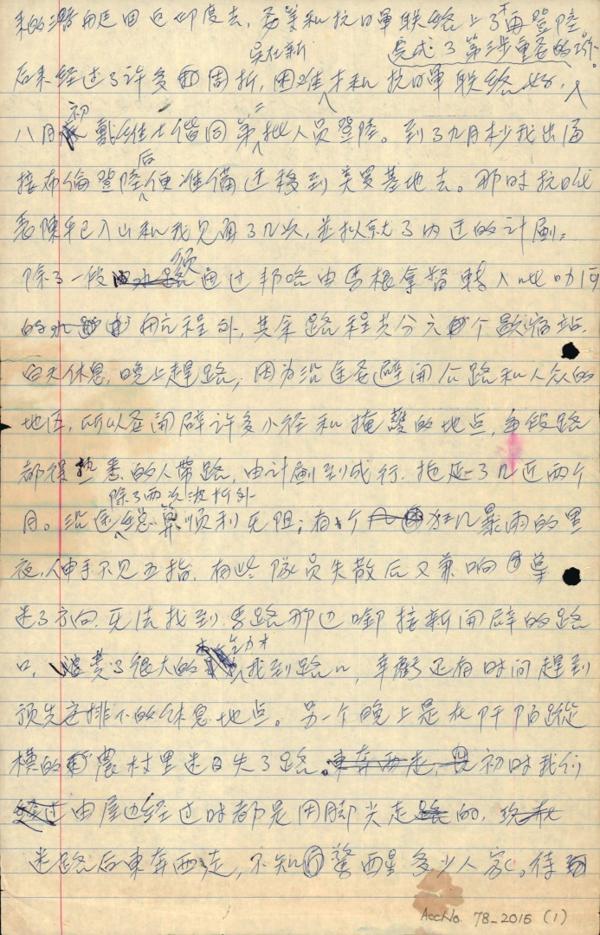 来的三哥甩回印度去，为着和抗日軍联络上了再登陸。
吴在新 完成了第三步重要的工作。
后来经过了许多周折，困难才和抗日軍联络好，
八月初戴維七偕同第二批人员登陸。到了九月杪我出海
接布倫登陸后便准備迁移到美罗基地去。那时抗日代
表陳平已入山和我见面了几次，並拟就了内迁的计劃：
除了一段须通过邦咯由馬根拿督轉入吡叻河
的水程外，其余路程共分六个歇宿站。
白天休息，晚上趕路，因为沿途要避開公路和人众的
地区，所以要開辟许多小径和掩蔽的地点，每段路
都得熟悉的人带路，由计劃到成行，拖延了几近两个
月。沿途除了两次波折外总算顺利无阻；有个狂风暴雨的黑
夜，伸手不见五指，有些隊员失散后又兼响导
迷了方向，无法找到馬路那边啣接新開辟的路
口，費了很大的气力才找到路口，幸虧还有时间趕到
预先安排下的休息地点。另一个晚上是在阡陌蹤
横的農村里迷失了路。初时我们
由屋边经过时都是用脚尖走的，
迷路后東奔西走，不知驚醒多少人家。待
AccNo. 78_2015 (1)